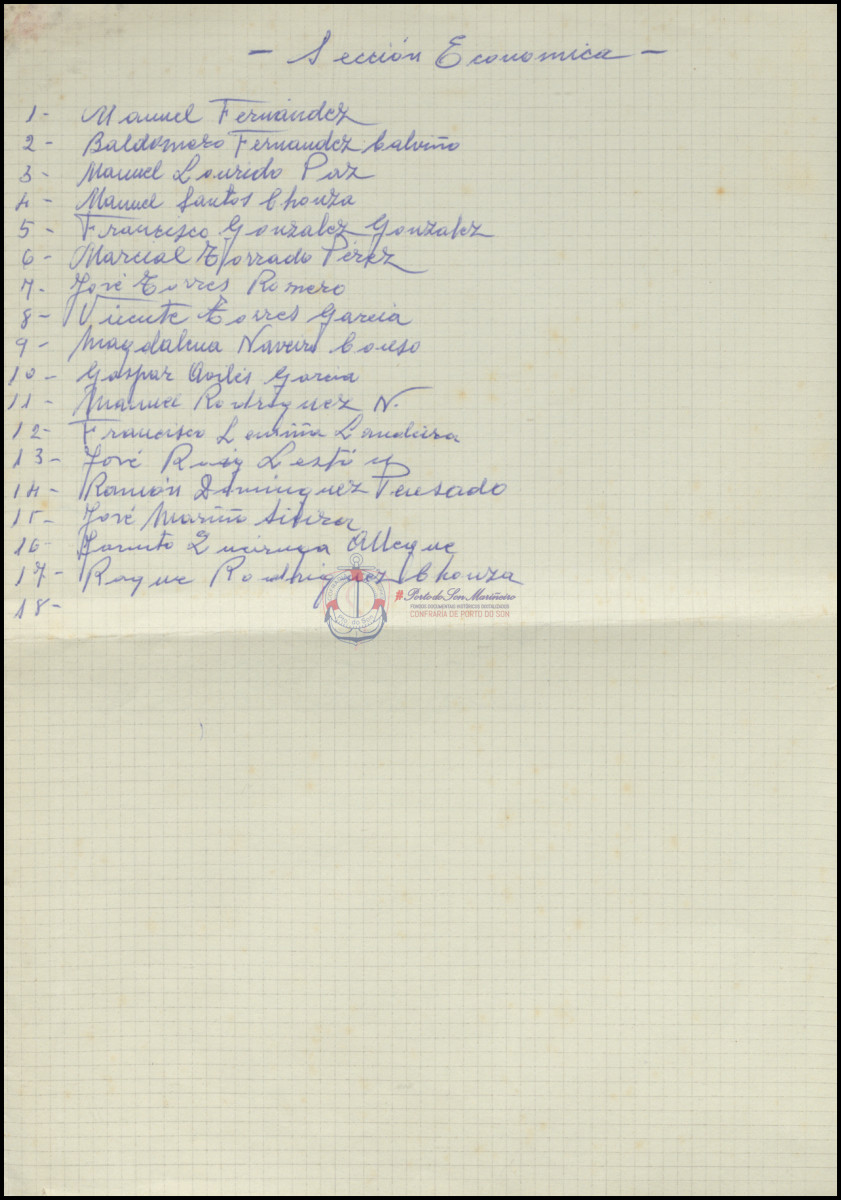 - Sección Economica -
1- Manuel Fernández
2- Baldomero Fernandez Calviño
3- Manuel Lourido Paz
4- Manuel Santos Chouza
5- Francisco Gonzalez Gonzalez
6- Marcial Torrado Pérez
7- José Torres Romero
8- Vicente Torres Garcia
9- Magdalena Naveiro
10- Gaspar Avilés Garcia
11- Manuel Rodriguez N.
12- Francisco
13- José
14- Ramón Dominguez Pensado
15- José Mariño
16-
17- Roque Rodriguez Chouza
18-
#Porto do Son Mariñeiro
FONDOS DOCUMENTAIS HISTÓRICOS DIXITALIZADOS
CONFRARIA DE PORTO DO SON
Pto. do Son